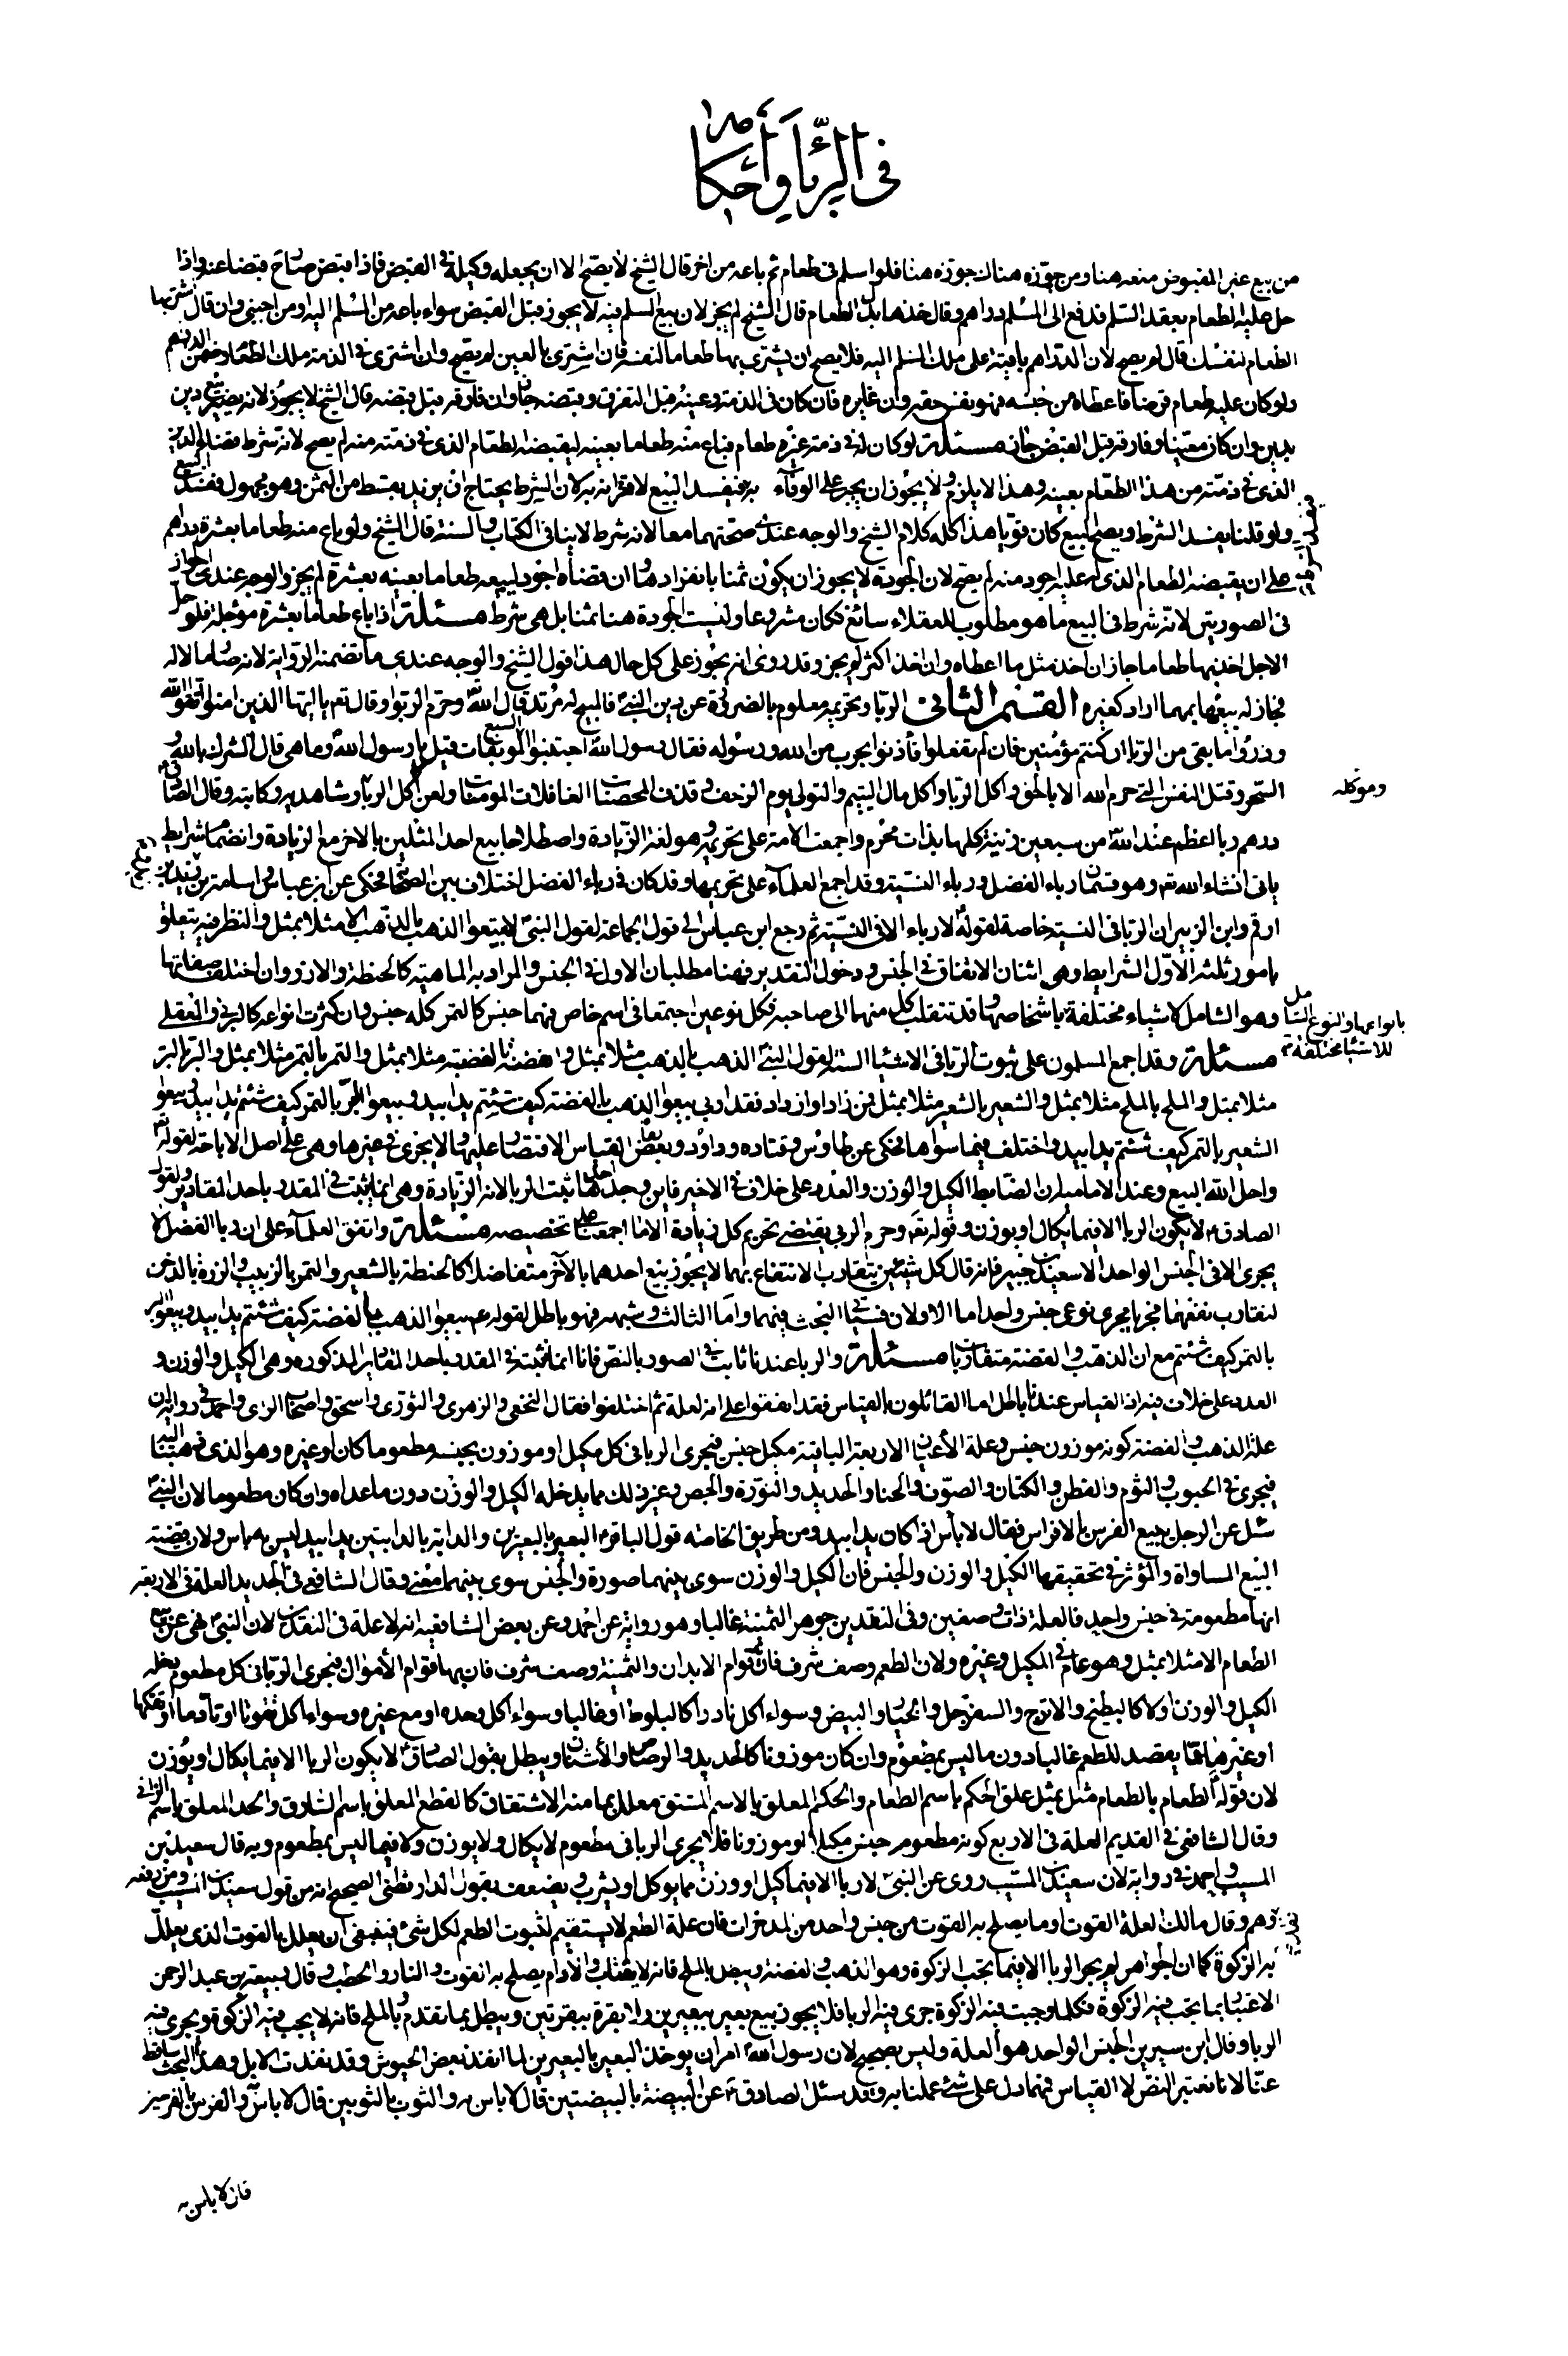 في الربا وأحكامه
من بيع غير المقبوض منعه هنا ومن جوزه هناك جوزه هنا فلو اسلم فى طعام ثم باعه من اخر قال الشيخ لا يصح الا ان يجعله وكيله فى القبض فاذا قبض صار ح قبضا عنه واذا
حل عليه الطعام بعقد السلم فدفع الى المسلم دراهم وقال خذها بدل الطعام قال الشيخ لم يجز لان بيع السلم فيه لا يجوز قبل القبض سواء باعه من المسلم اليه او من اجنبى وان قال اشتر بها
الطعام لنفسك قال لم يصح لان الدراهم باقية على ملك المسلم اليه فلا يصح ان يشترى بها طعاما لنفسه فان اشترى بالعين لم يصح وان اشترى فى الذمة ملك الطعام وضمن الدراهم
ولو كان عليه طعام قرضا فاعطاه من جنسه فهو نفس حقه وان غايره فان كان فى الذمة وعينه قبل التفرق وقبضه جاز وان فارقه قبل قبضه قال الشيخ لا يجوز لانه يصير بيع دين
بدين وان كان معينا وفارقه قبل القبض جاز مسئلة لو كان له فى ذمة غيره طعام فباع منه طعاما بعينه ليقبضه الطعام الذى فى ذمته منه لم يصح لانه شرط قضاء الدين
الذى فى ذمته من هذا الطعام بعينه وهذا لا يلزم ولا يجوز ان يجبر على الوفاء به فيفسد البيع لاقترانه به لان الشرط يحتاج ان يزيد بقسط من الثمن وهو مجهول فيفسد البيع
ولو قلنا يفسد الشرط ويصح البيع كان قويا هذا كله كلام الشيخ والوجه عندى صحتهما معا لانه شرط لا ينافى الكتاب والسنة قال الشيخ ولو باع منه طعاما بعشرة دراهم
على ان يقبضه الطعام الذى له عليه اجود منه لم يصح لان الجودة لا يجوز ان يكون ثمنا بانفرادها وان قضاه اجود ليبيعه طعاما بعينه بعشرة لم يجز والوجه عندى الجواز
فى الصورتين لانه شرط فى البيع ما هو مطلوب للعقلاء سائغ فكان مشروعا وليست الجودة هنا ثمنا بل هى شرط مسئلة اذا باع طعاما بعشرة مؤجلة فلو حل
الاجل اخذ بها طعاما جاز ان اخذ مثل ما اعطاه وان اخذ اكثر لم يجز وقد روى انه يجوز على كل حال هذا قول الشيخ والوجه عندى ما تضمنه الرواية لانه صار مالا له
فجاز له بيعها بمهما اراد كغيره القسم الثانى الربا وتحريمه معلوم بالضرورة عن دين النبى فالمبيح له مرتد قال الله وحرم الربوا وقال تعم يا ايها الذين امنوا اتقوا الله
وذروا ما بقى من الربا ان كنتم مؤمنين فان لم تفعلوا فأذنوا بحرب من الله ورسوله فقال رسول الله اجتنبوا السبع الموبقات قيل يا رسول الله وما هى قال الشرك بالله و
السحر وقتل النفس التى حرم الله الا بالحق واكل الربا واكل مال اليتيم والتولى يوم الزحف وقذف المحصنات الغافلات المومنات ولعن اكل الربا وشاهديه وكاتبه وقال الصادق
وموكله
درهم ربا اعظم عند الله من سبعين زنية كلها بذات محرم واجمعت الامة على تحريمه وهو لغة الزيادة واصطلاحا بيع احد المثلين بالاخر مع الزيادة وانضمام شرايط
ياتى انشاء الله تعم وهو قسمان رباء الفضل ورباء النسية وقد اجمع العلماء على تحريمها وقد كان فى رباء الفضل اختلاف بين الصحابة فحكى عن ابن عباس واسامة بن زيد وزيد بن
ارقم وابن الزبير ان الربا فى النسية خاصة لقوله لا رباء الا فى النسية ثم رجع ابن عباس الى قول الجماعة لقول النبى لا تبيعوا الذهب بالذهب الا مثلا بمثل والنظر فيه يتعلق
بامور ثلثة الاول الشرايط وهى اثنان الاتفاق فى الجنس ودخول التقدير فهنا مطلبان الاول فى الجنس والمراد به الماهية كالحنطة والارز وان اختلف صفاتها
وهو الشامل لاشياء مختلفة باشخاصها وقد تنقلب كل منهما الى صاحبه فكل نوعين اجتمعا فى اسم خاص فهما جنس كالتمر كله جنس وان كثرت انواعه كالبرنى والمعقلى
بانواعها والنوع الشامل
للاشياء مختلفة
مسئلة وقد اجمع المسلمون على ثبوت الربا فى الاشياء الستة لقول النبى الذهب بالذهب مثلا بمثل والفضة بالفضة مثلا بمثل والتمر بالتمر مثلا بمثل والبر بالبر
مثلا بمثل والملح بالملح مثلا بمثل والشعير بالشعير مثلا بمثل فمن زاد او ازداد فقد اربى بيعوا الذهب بالفضة كيف شئتم يدا بيد وبيعوا البر بالتمر كيف شئتم يدا بيد وبيعوا
الشعير بالتمر كيف شئتم يدا بيد واختلف فيما سواها فحكى عن طاوس وقتاده وداود ونفاة القياس الاقتصار عليها والا يجرى فى غيرها وهى على اصل الاباحة لقوله تعم
واحل الله البيع وعند الامامية ان الضابط الكيل والوزن والعدد على خلاف فى الاخير فاين وجد احدها ثبت الربا لانه الزيادة وهى انما يثبت فى المقدر باحد المقادير ولقول
الصادق لا يكون الربا الا فيما يكال او يوزن وقوله تعم وحرم الربى يقتضى تحريم كل زيادة الا ما اجمعنا على تخصيصه مسئلة واتفق العلماء على ان ربا الفضل لا
يجرى الا فى الجنس الواحد الا سعيد بن جبير فانه قال كل شيئين يتقارب الانتفاع بهما لا يجوز بيع احدهما بالاخر متفاضلا كالحنطة بالشعير والتمر بالزبيب والزرة بالدخن
لتقارب نفعهما فجريا مجرى نوعى جنس واحد اما الاولان فسياتى البحث فيهما واما الثالث وشبهه فهو باطل لقوله عم بيعوا الذهب بالفضة كيف شئتم يدا بيد وبيعوا البر
بالتمر كيف شئتم مع ان الذهب والفضة متقاربان مسئلة والربا عندنا ثابت فى الصور بالنص فانا انما نثبته فى المقدر باحد المقادير المذكوره وهى الكيل والوزن و
العدد على خلاف فيه اذ القياس عندنا باطل اما القائلون بالقياس فقد اتفقوا على انه لعلة ثم اختلفوا فقال النخعى والزهرى والثورى واسحق واصحاب الراى واحمد فى رواية ان
علة الذهب والفضة كونه موزون جنس وعلة الاعيان الاربعة الباقية مكيل جنس فيجرى الربا فى كل مكيل او موزون بجنسه مطعوما كان او غيره وهو الذى ذهبنا اليه
فيجرى فى الحبوب والثوم والقطن والكتان والصوف والحنا والحديد والنورة والجص وغير ذلك مما يدخله الكيل والوزن دون ما عداه وان كان مطعوما لان النبى
سئل عن الرجل يبيع الفرس بالافراس فقال لا بأس اذا كان يدا بيد ومن طريق الخاصه قول الباقر البعير بالبعيرين والدابة بالدابتين يدا بيد ليس به باس ولان قضية
البيع المساواة والمؤثر فى تحقيقها الكيل والوزن والجنس فان الكيل والوزن سوى بينهما صورة والجنس سوى بينهما معنى وقال الشافعى فى الجديد العلة فى الاربعة
انها مطعومة فى جنس واحد فالعلة ذات وصفين وفى النقدين جوهر الثمنية غالبا وهو رواية عن احمد وعن بعض الشافعية انه لا علة فى النقدين لان النبى نهى عن بيع
الطعام الا مثلا بمثل وهو عام فى المكيل وغيره ولان الطعم وصف شرف فان به قوام الابدان والثمنية وصف شرف فان بها قوام الاموال فيجرى الربا فى كل مطعوم يدخله
الكيل والوزن او لا كالبطيخ والاترج والسفرجل والخيار والبيض وسواء اكل نادرا كالبلوط او غالبا وسواء اكل وحده او مع غيره وسواء اكل تقوتا او تأدما او تفكها
او غيرها مما يقصد للطعم غالبا دون ما ليس بمطعوم وان كان موزونا كالحديد والرصاص والاشنان ويبطل بقول الصادق لا يكون الربا الا فيما يكال او يوزن
لان قوله الطعام بالطعام مثل بمثل علق الحكم باسم الطعام والحكم المعلق بالاسم المشتق معلل بما منه الاشتقاق كالقطع المعلق باسم السارق والحد المعلق باسم الزانى
وقال الشافعى فى القديم العلة فى الاربع كونه مطعوم جنس مكيلا او موزونا فلا يجرى الربا فى مطعوم لا يكال ولا يوزن ولا فيما ليس بمطعوم وبه قال سعيد بن
المسيب واحمد فى رواية لان سعيد بن المسيب روى عن النبى لا ربا الا فيما كيل او وزن مما يوكل او يشرب ويضعف بقول الدارقطنى الصحيح انه من قول سعيد بن المسيب ومن رفعه
وهم وقال مالك العلة القوت او ما يصلح به القوت من جنس واحد من المدخرات فان علة الطعم لا يستقيم لثبوت الطعم لكل شىء فينبغى ان يعلل بالقوت الذى يعلل
به الزكوة كما ان الجواهر لم يجر الربا الا فيما يجب الزكوة وهو الذهب والفضة وينتقض بالملح فانه لا يقتات والادام يصلح به القوت والنار والحطب وقال ربيعة بن عبد الرحمن
الاعتبار بما تجب فيه الزكوة فكلما وجبت فيه الزكوة جرى فيه الربا فلا يجوز بيع بعير ببعيرين ولا بقرة ببقرتين ويبطل بما تقدم وبالملح فانه لا يجب فيه الزكوة ويجرى فيه
الربا وقال ابن سيرين الجنس الواحد هو العلة وليس بصحيح لان رسول الله امر ان يوخذ البعير بالبعيرين لما انفذ بعض الجيوش وقد نفدت الابل وهذا البحث ساقط
عنا لانا نعتبر النص لا القياس فمهما دل على شىء عملنا به وقد سئل الصادق عن البيضة بالبيضتين قال لا باس به والثوب بالثوبين قال لا باس والفرس بالفرسين
قال لا باس به